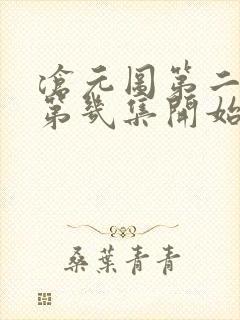 滄元圖第二
第幾集開始
桑葉青青